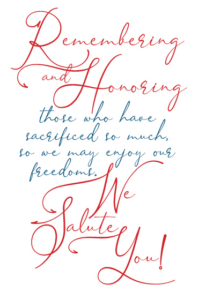 Remembering
and Honoring
those who have
sacrificed so much,
so we may enjoy our
freedoms.
We
Salute
You!